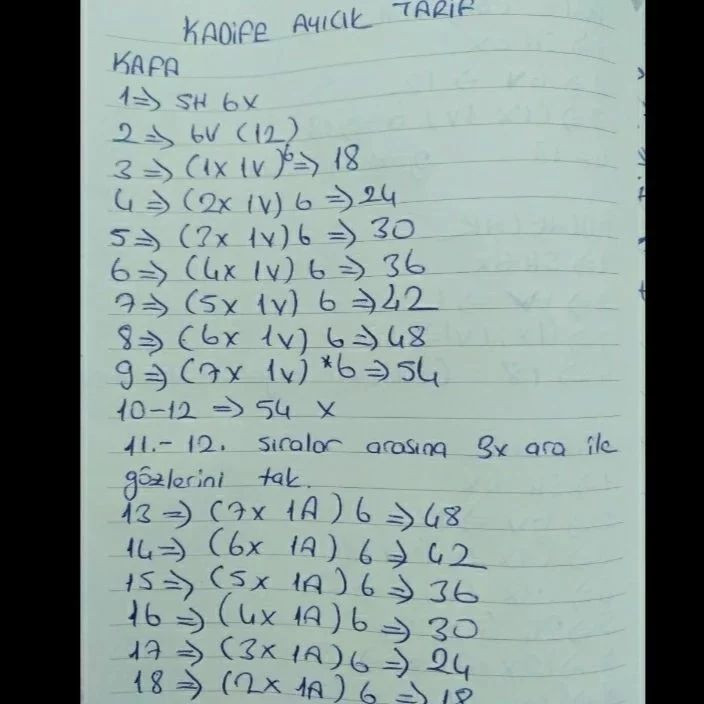 KADİFE AYICIK TARİF
KAFA
1⇒ SH 6X
2 ⇒ 6V (12)
3 ⇒ (1x 1V)6⇒ 18
4 ⇒ (2x 1V) 6 ⇒24
5⇒ (3x 1V)6 ⇒ 30
6⇒ (4x 1V) 6 ⇒ 36
7⇒ (5x 1V) 6 ⇒42
8⇒ (6x 1V) 6⇒48
9⇒ (7x 1V) *6⇒54
10-12 ⇒ 54 x
11.-12. sıralar arasına 9x ara ile
gözlerini tak.
13 ⇒ (7x 1A) 6 ⇒48
14⇒ (6x 1A) 6 ⇒ 42
15⇒ (5x 1A) 6 ⇒ 36
16 ⇒ (4x 1A)6 ⇒ 30
17 ⇒ (3x 1A)6 ⇒ 24
18 ⇒ (2x 1A) 6 ⇒ 18